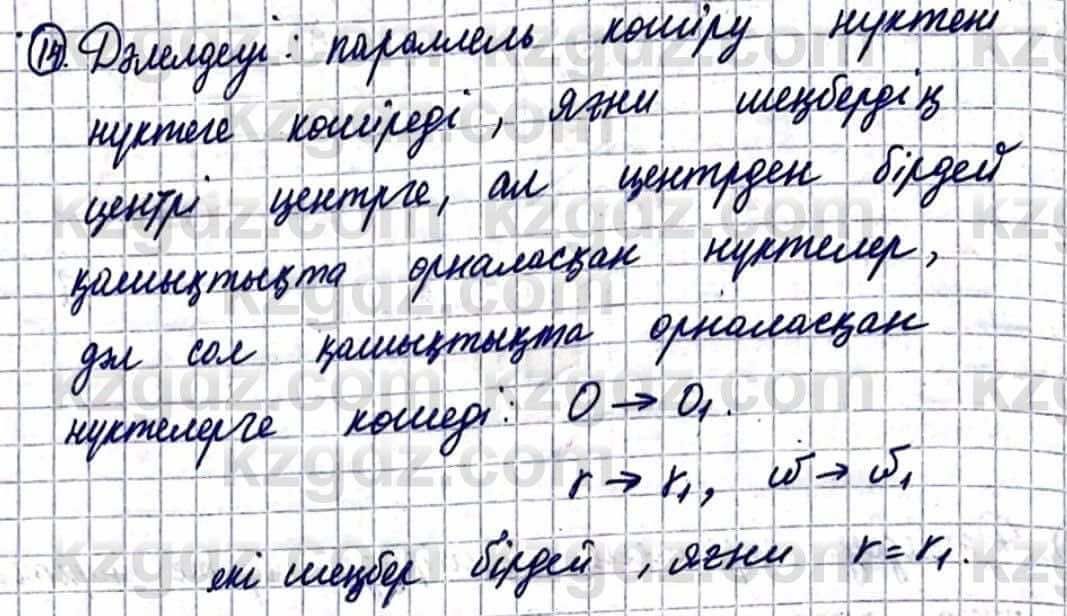 14. Дәлелдеуі: параллель көшіру нүктені
нүктеге көшіреді, яғни шеңбердің
центрі центрге, ал центрден бірдей
қашықтықта орналасқан нүктелер,
дәл сол қашықтықта орналасқан
нүктелерге көшеді: O → O₁.
r → r₁, ω → ω₁
екі шеңбер бірдей, яғни r = r₁.